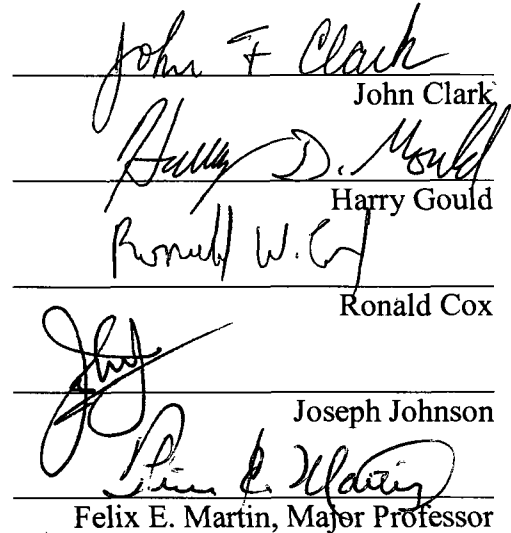 John F Clark
John Clark
Harry D. Gould
Harry Gould
Ronald W. Cox
Ronald Cox
Joseph Johnson
Felix E. Martin, Major Professor